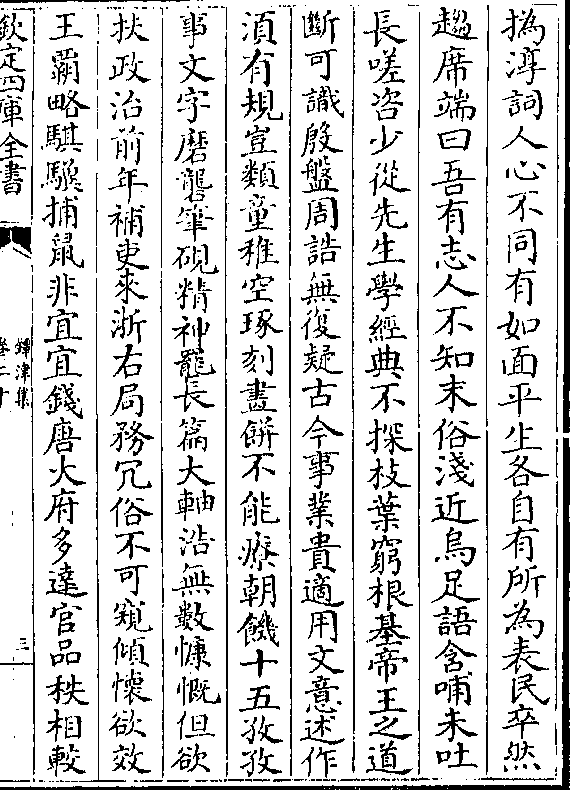 摛淳詞人心不同有如面平生各自有所為表民卒然
趨席端曰吾有志人不知末俗淺近烏足語含哺未吐
長嗟咨少從先生學經典不探枝葉窮根基帝王之道
斷可識殷盤周誥無復疑古今事業貴適用文意述作
須有規豈類童稚空琢刻畫餅不能療朝饑十五孜孜
事文字磨礱筆硯精神罷長篇大軸浩無數慷慨但欲
扶政治前年補吏來浙右局務冗俗不可窺傾懷欲效
王霸略騏驥捕鼠非宜宜錢唐大府多達官品秩相較
欽定四庫全書
鐔津集
卷二十
三